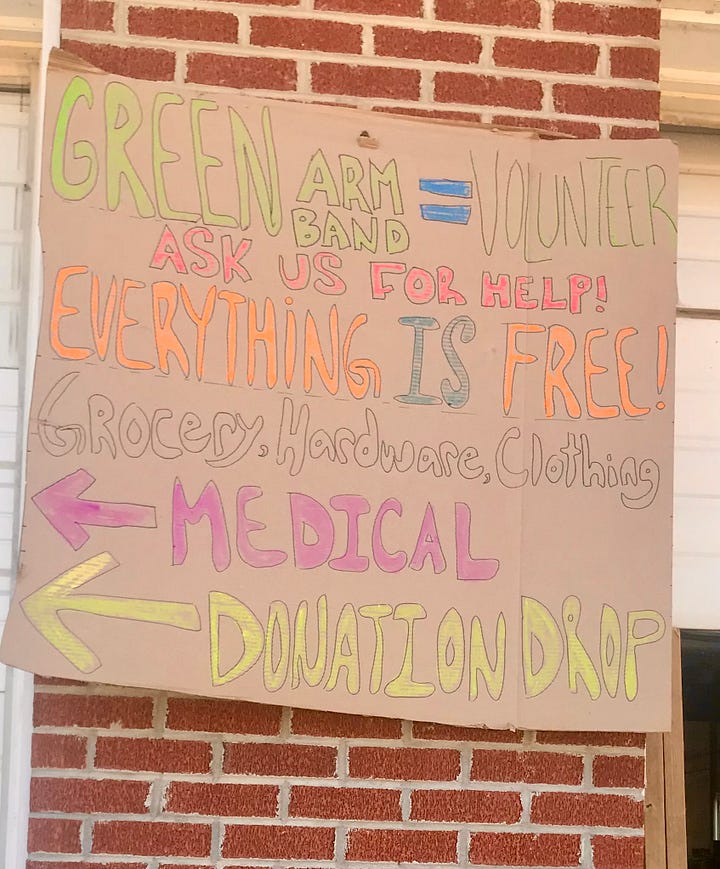 GREEN ARM BAND = VOLUNTEER
ASK US FOR HELP!
EVERYTHiNG IS FREE!
GROCery, Hardware, Clothing
← MEDICAL
← DONATION DROP